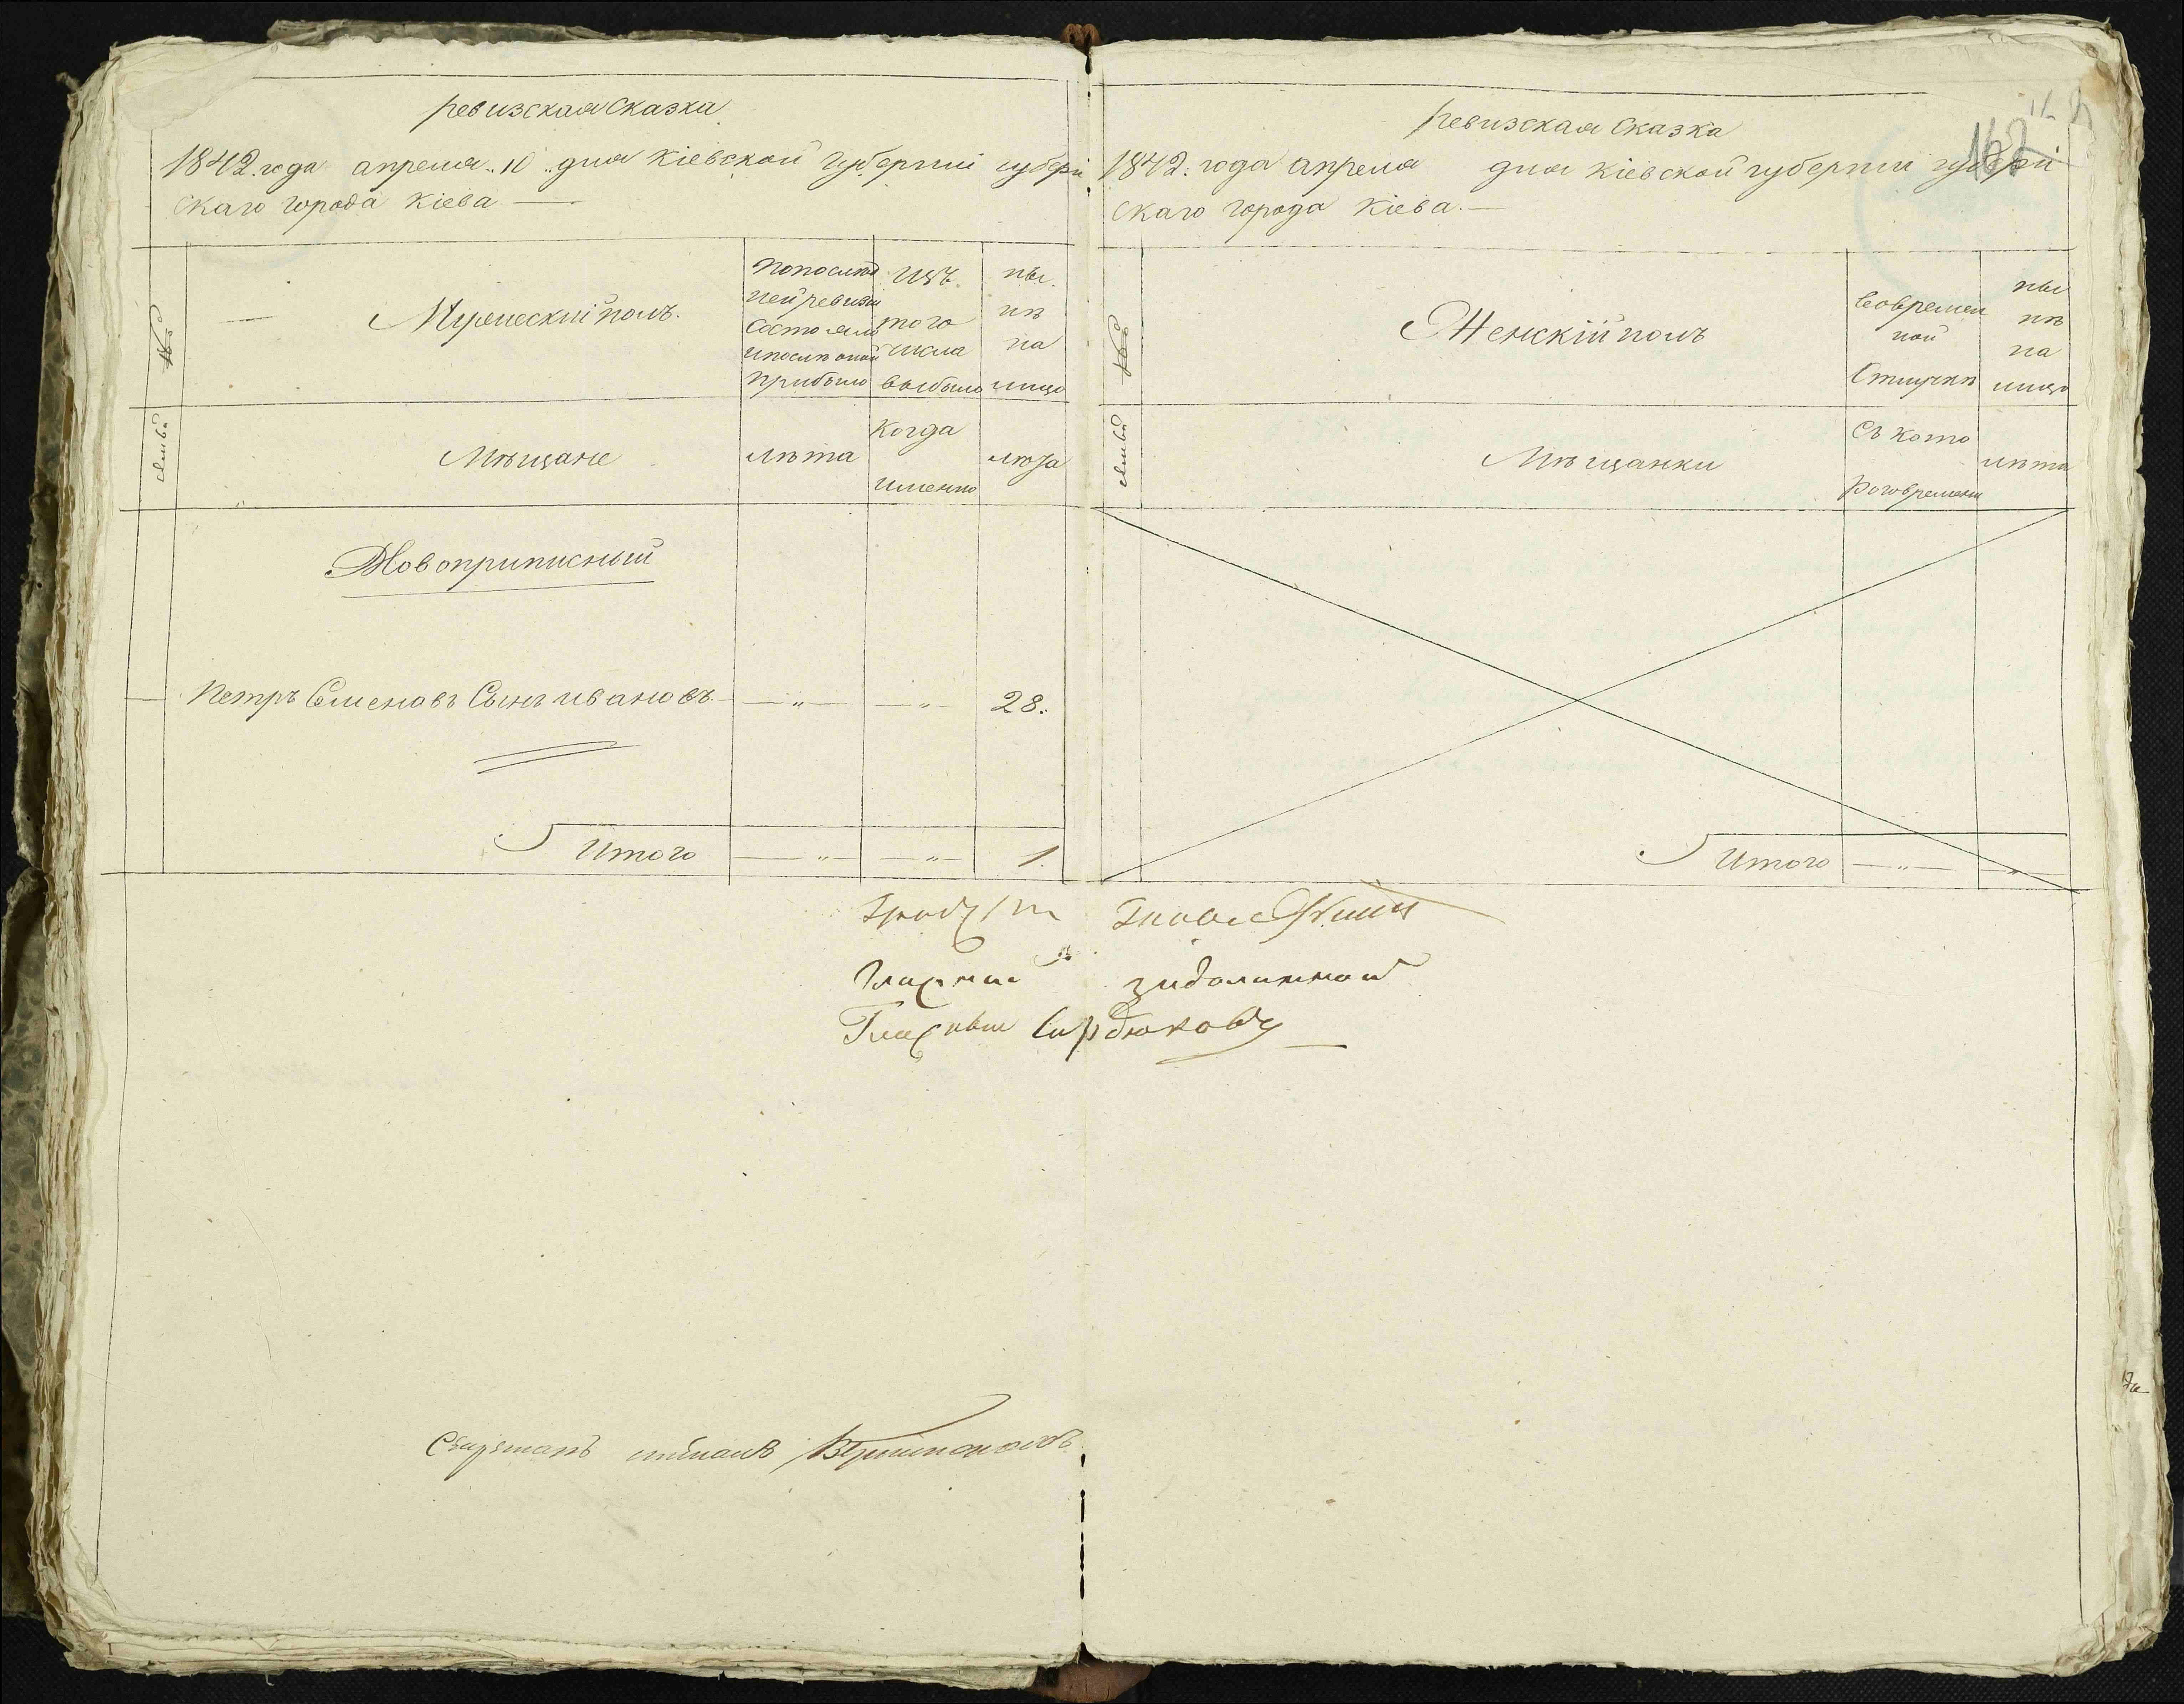 ревизская сказка
1842 года апреля „10„ дня Кіевской губерніи губерн
скаго города Кіева —
№
Мужескій полъ.
По послѣд
ней ревизіи
состояло
и послѣ оной
прибыло
изъ
того
числа
выбыло
ны
нѣ
на
лицо
семьи
Мѣщане
лѣта
когда
именно
лѣта
Новоприписный
Петръ Семеновъ Сынъ ивановъ — „ — — „ — 28.
Итого — „ — — „ — 1.
ревизская сказка
1842. года апреля дня Кіевской губерніи губерн
скаго города Кіева. —
№
Женскій полъ
Во времен
ной
отлучкѣ
ны
нѣ
на
лицо
семьи
Мѣщанки
съ кото
раго времени
лѣта
Итого — „ — — „ —
162
Гласный
Гласный Сердюковъ